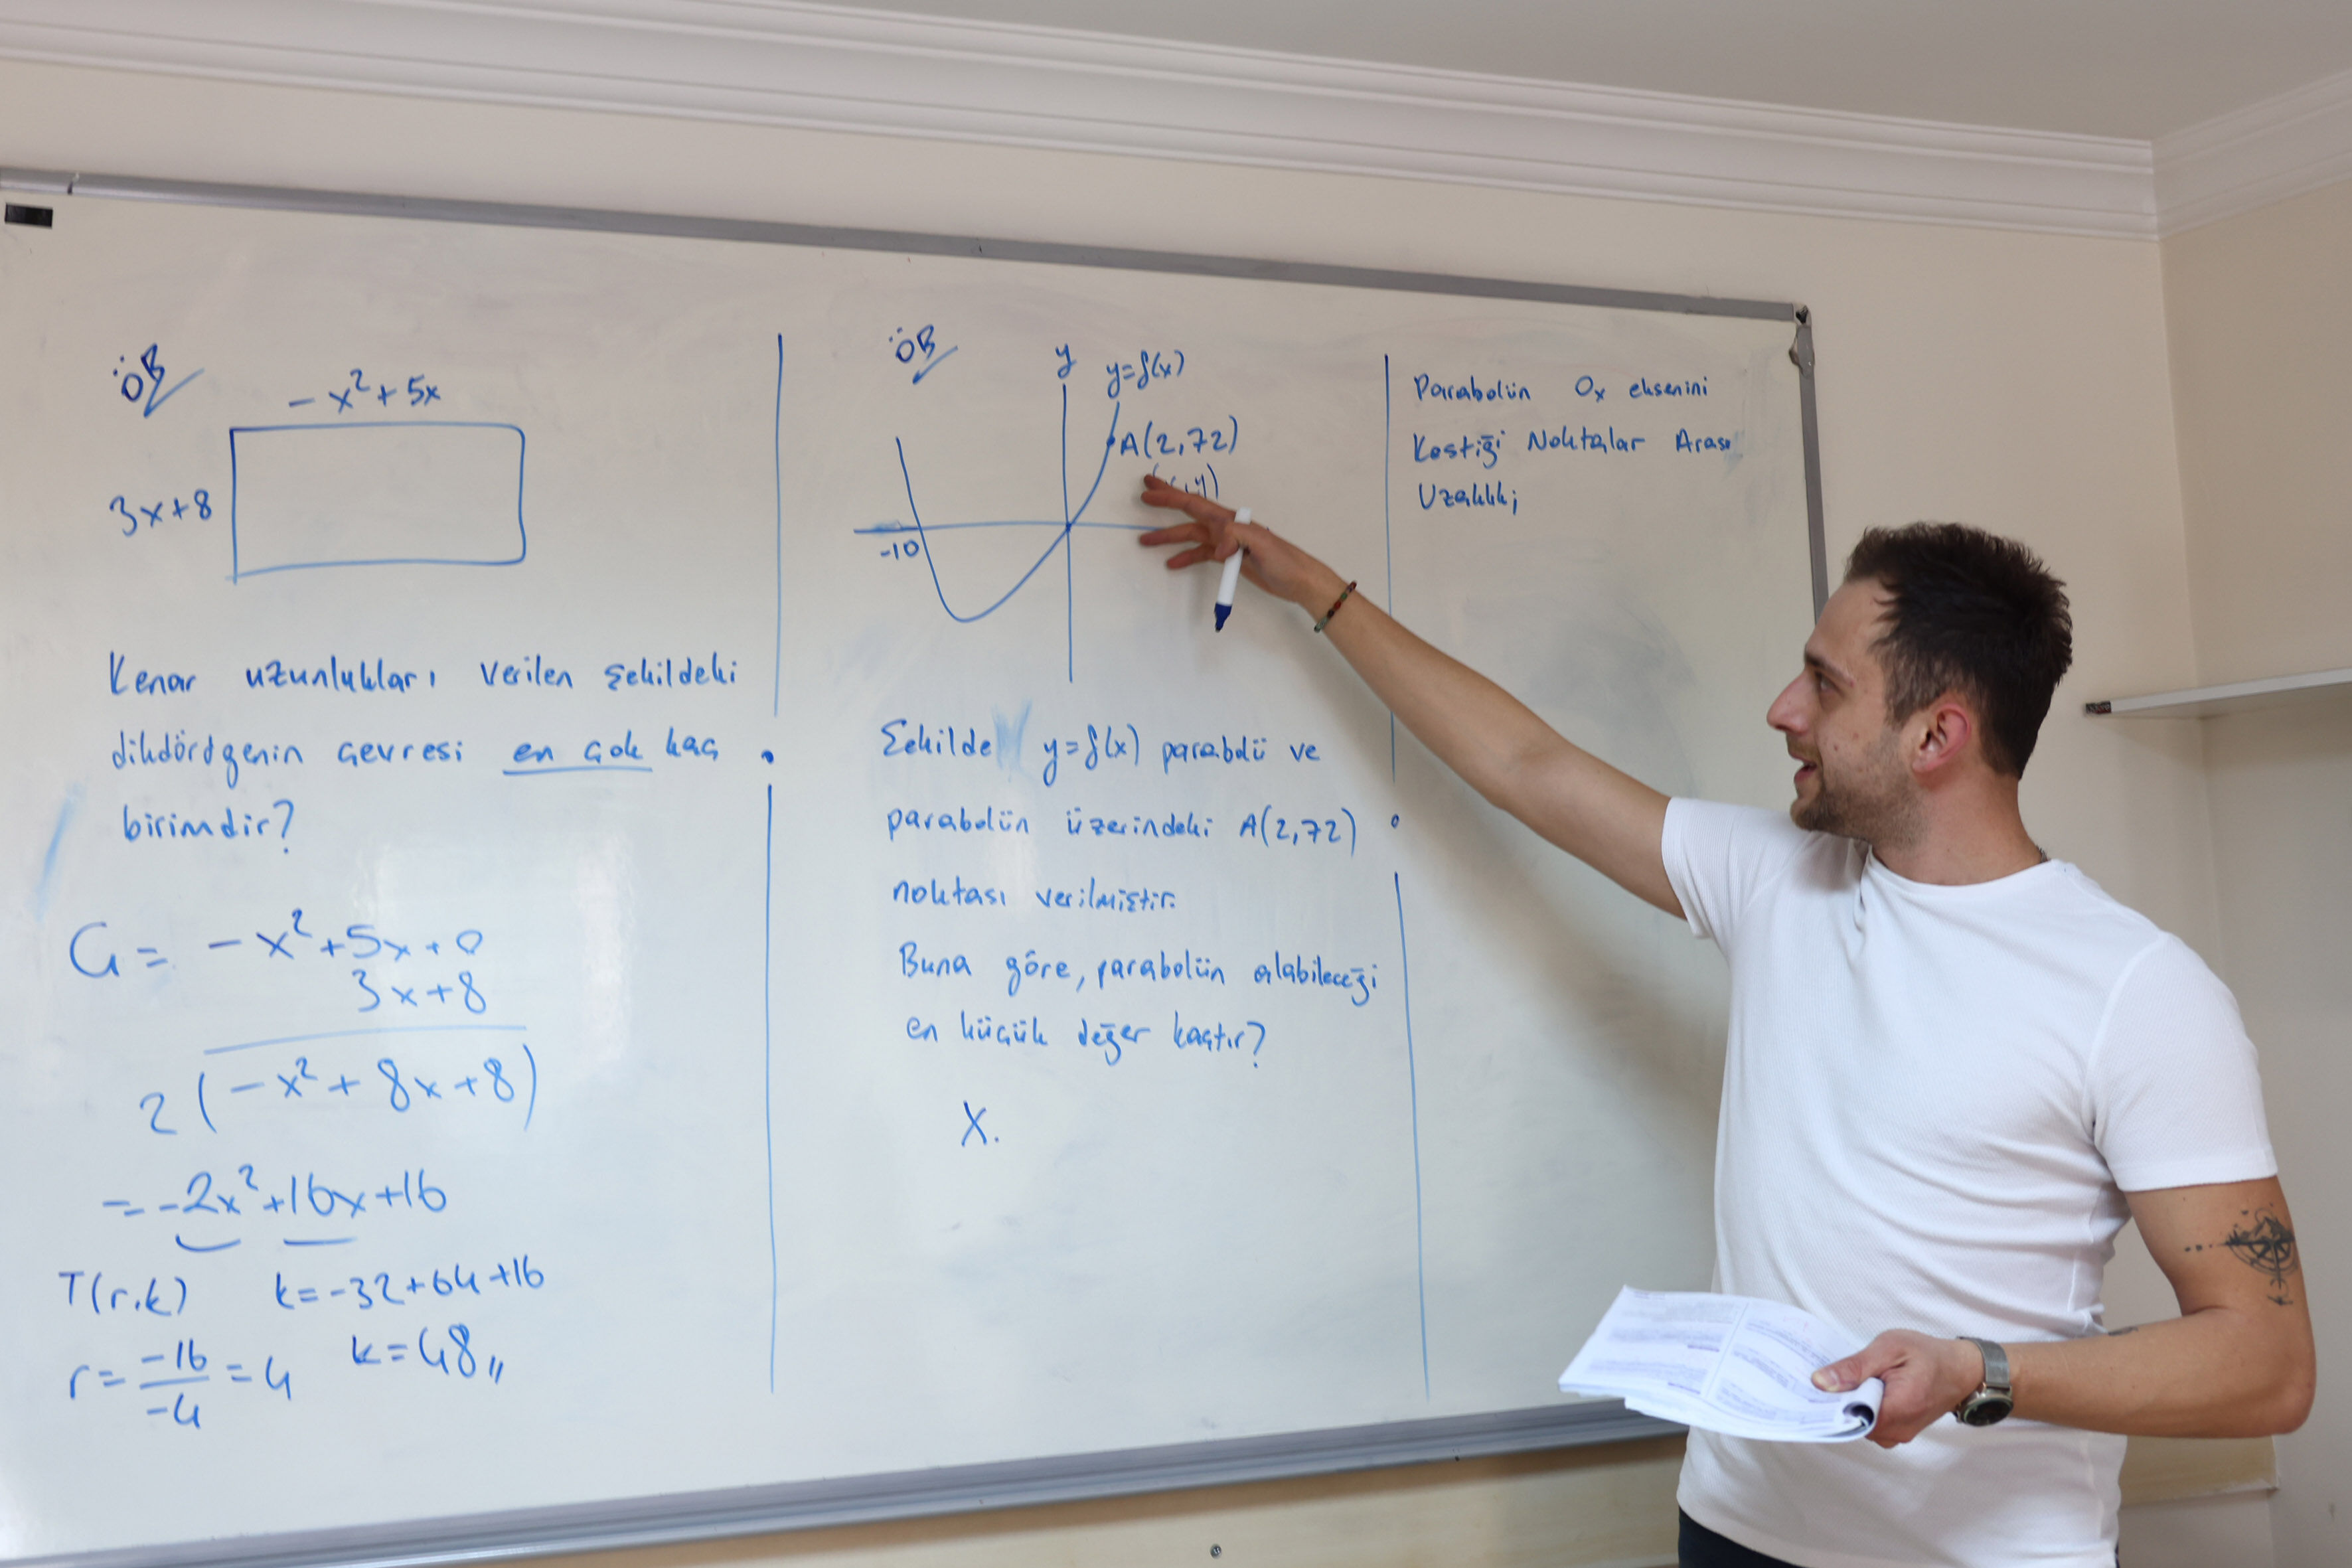 ÖR
- x² + 5x
3x+8
Kenar uzunlukları verilen şekildeki
dikdörtgenin çevresi en çok kaç
birimdir?
Ç = - x² + 5x + 0
3x+8
2(-x² + 8x + 8)
= -2x² + 16x + 16
T(r,k) k = -32 + 64 + 16
r = -16/-4 = 4 k = 48,,
ÖR
y
y=f(x)
A(2,72)
-10
Şekilde y=f(x) parabolü ve
parabolün üzerindeki A(2,72)
noktası verilmiştir.
Buna göre, parabolün alabileceği
en küçük değer kaçtır?
X.
Parabolün Ox eksenini
Kestiği Noktalar Arası
Uzaklık;